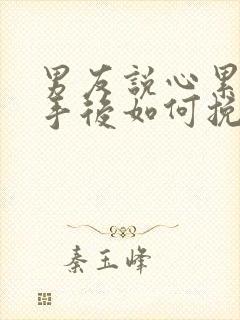 男友說心累
手後如何挽
秦玉峰